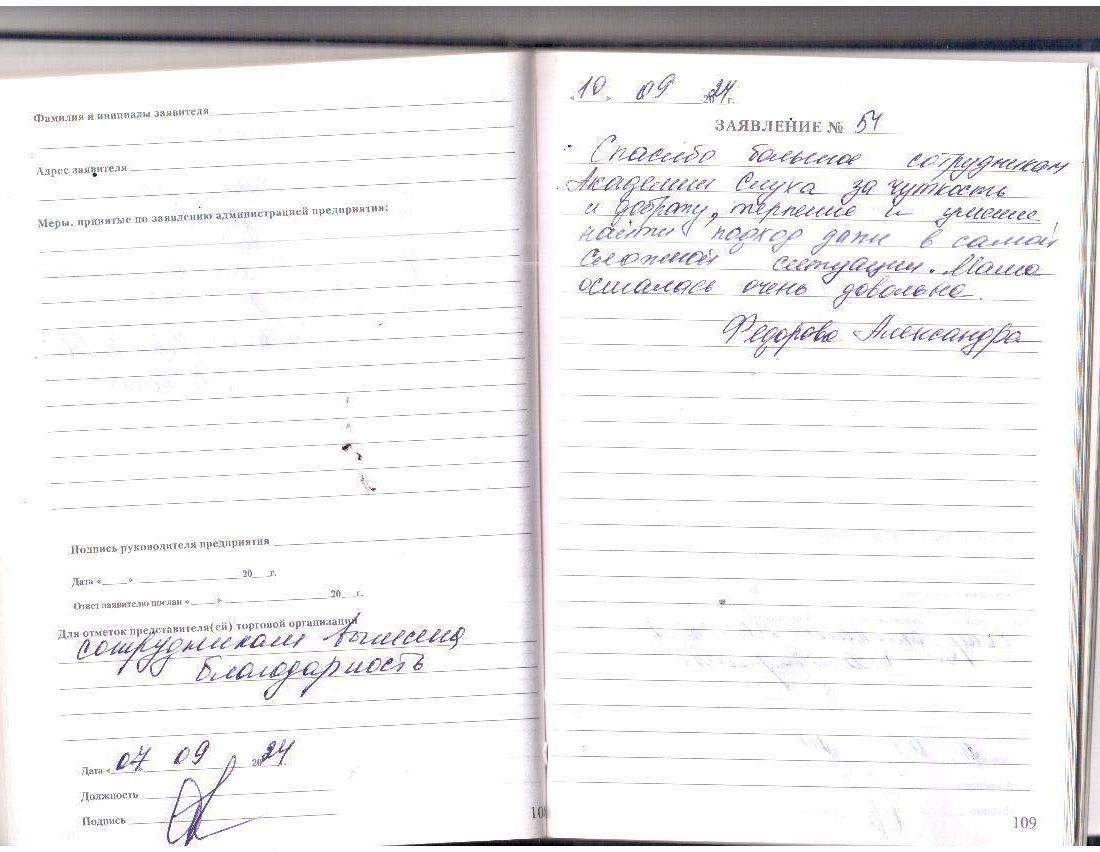 Фамилия и инициалы заявителя
Адрес заявителя
Меры, принятые по заявлению администрацией предприятия:
Подпись руководителя предприятия
Дата «____» ____ 20__г.
Ответ заявителю послан «____» ____ 20__г.
Для отметок представителя(ей) торговой организации
сотрудникам вынесена
благодарность
Дата « 07 09 2024
Должность
Подпись
«10» 09 2024 г.
ЗАЯВЛЕНИЕ № 54
Спасибо большое сотрудникам
Академии Слуха за чуткость
и доброту, терпение и умение
найти подход даже в самой
сложной ситуации. Мама
осталась очень довольна.
Федорова Александра
109